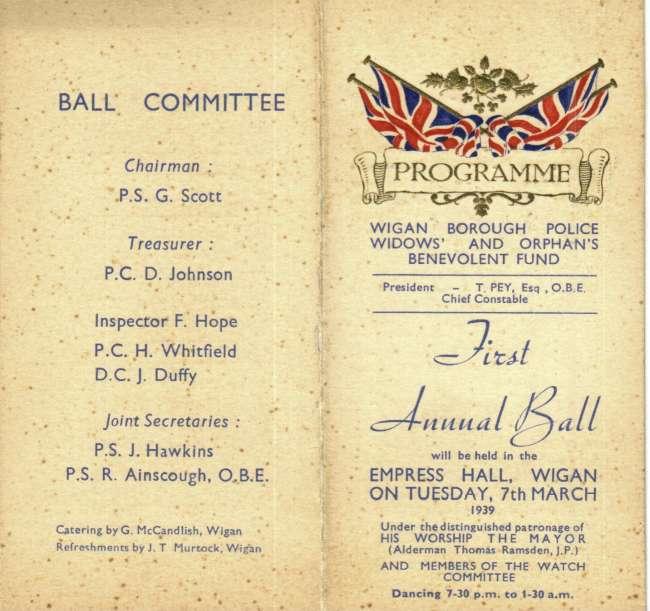 BALL COMMITTEE
Chairman :
P.S. G. Scott
Treasurer :
P.C. D. Johnson
Inspector F. Hope
P.C. H. Whitfield
D.C. J. Duffy
Joint Secretaries :
P.S. J. Hawkins
P.S. R. Ainscough, O.B.E.
Catering by G. McCandlish, Wigan
Refreshments by J. T Murtock, Wigan
PROGRAMME
WIGAN BOROUGH POLICE
WIDOWS' AND ORPHAN'S
BENEVOLENT FUND
President – T. PEY, Esq , O.B.E.
Chief Constable
First
Annual Ball
will be held in the
EMPRESS HALL, WIGAN
ON TUESDAY, 7th MARCH
1939
Under the distinguished patronage of
HIS WORSHIP THE MAYOR
(Alderman Thomas Ramsden, J.P.)
AND MEMBERS OF THE WATCH
COMMITTEE
Dancing 7-30 p.m. to 1-30 a.m.